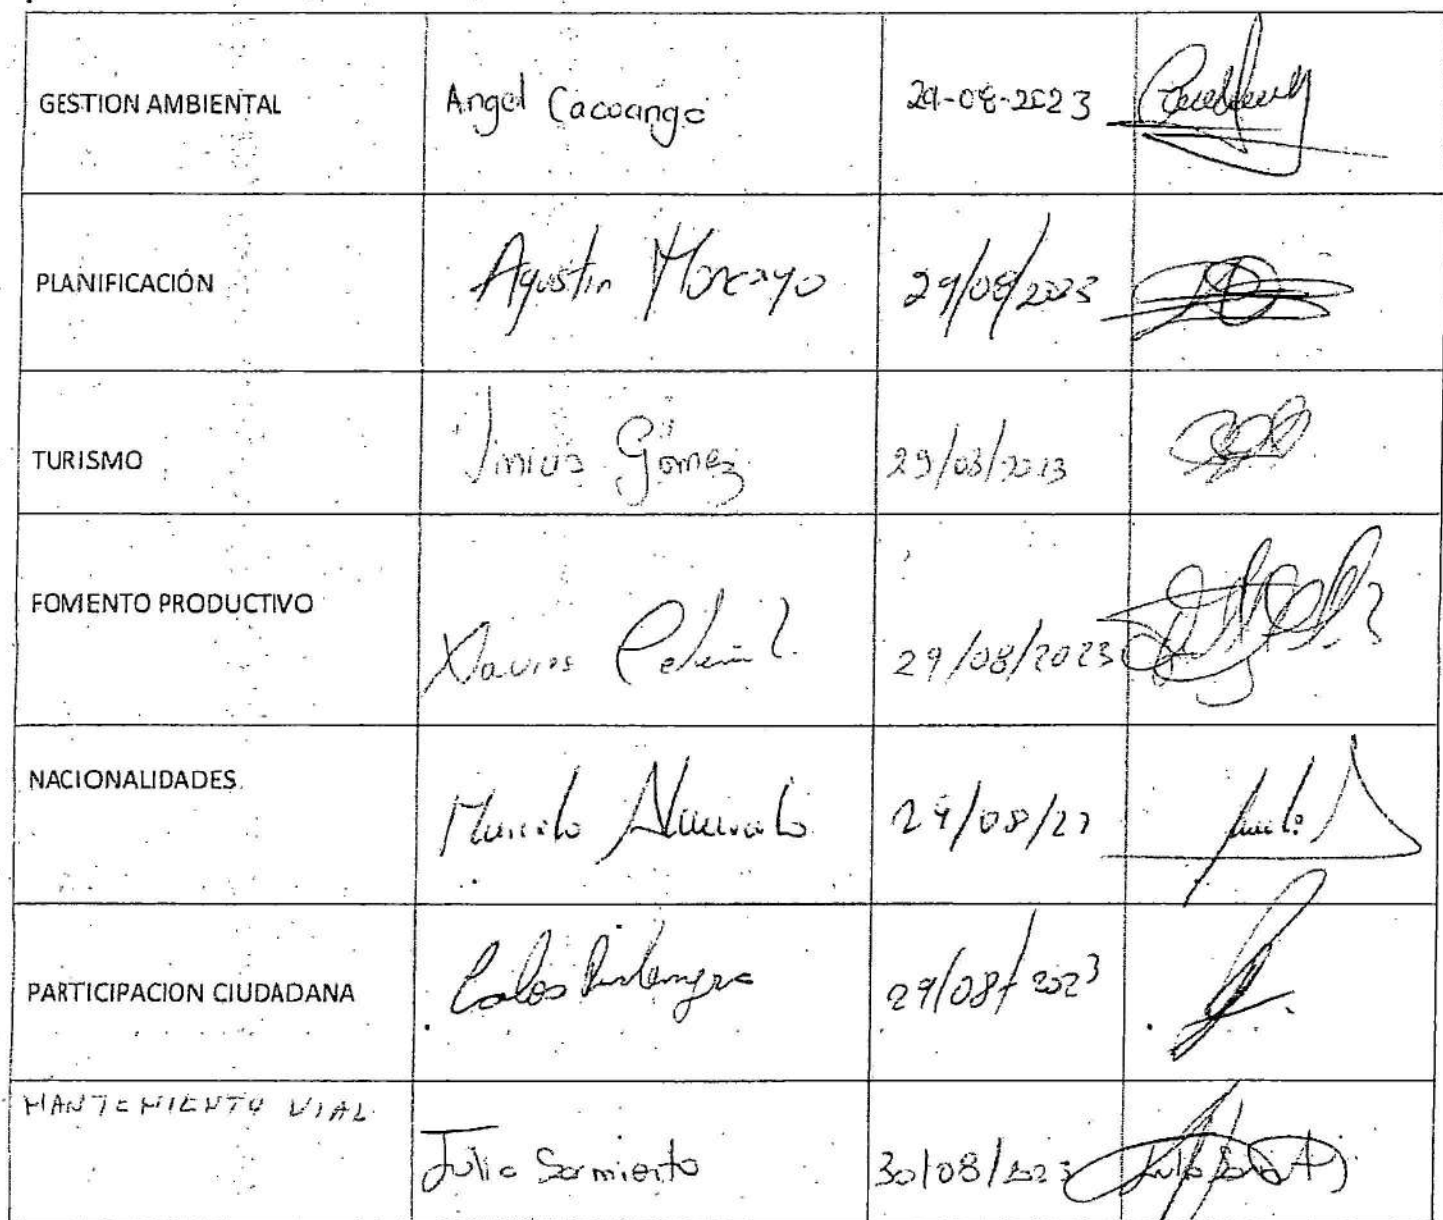 GESTION AMBIENTAL Angel Cacoango 29-08-2023
PLANIFICACIÓN Agustin Moncayo 29/08/2023
TURISMO Gómez 29/08/2023
FOMENTO PRODUCTIVO
29/08/2023
NACIONALIDADES
29/08/23
PARTICIPACION CIUDADANA Carlos 29/08/2023
MANTENIMIENTO VIAL
Julio Sarmiento 30/08/2023